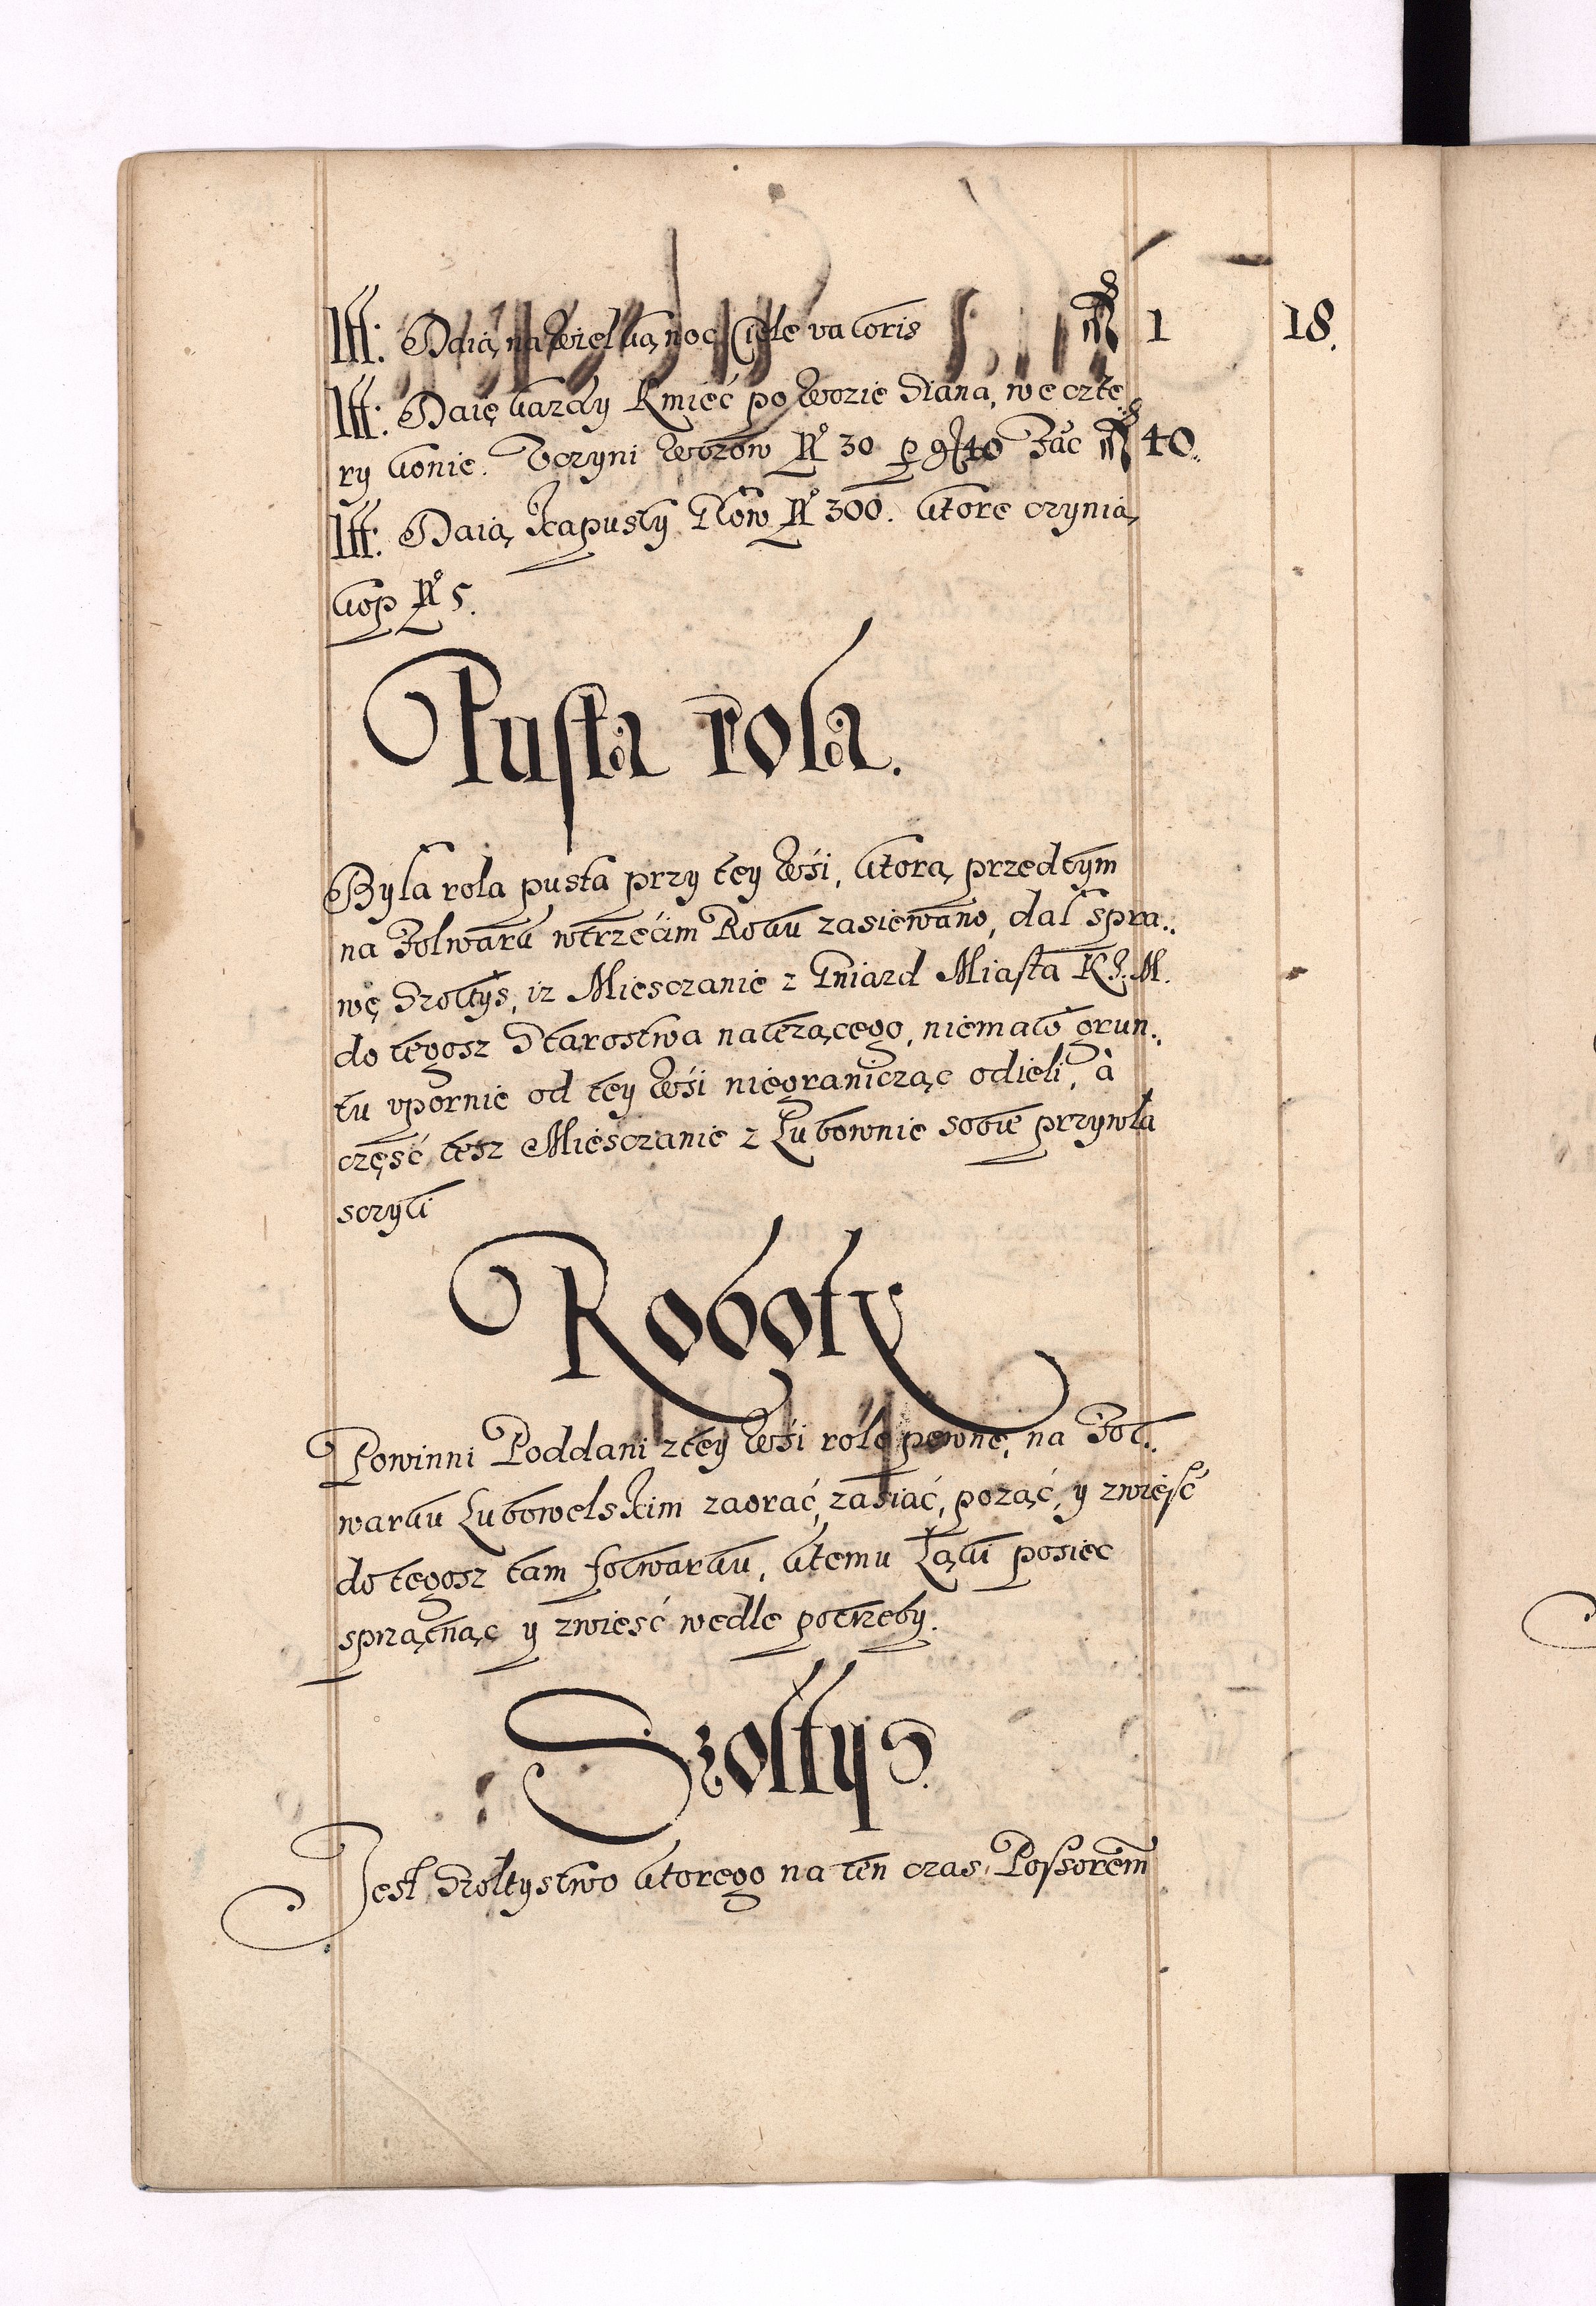 Itt: Daią na Wielką noc Cielę valoris
1 18.
Itt: Daię kazdy Kmieć po Wozie Siana, we czte
ry konie. Uczyni Wozow No 30 p g 40 Fac 40.
Itt: Daią Kapusty Głow No 300. ktore czynią
kop No 5.
Pusta rola.
Była rola pusta przy tey Wsi, ktorą przedtym
na Folwark wtrzecim Roku zasiewano, dał spra..
wę Szołtys, iz Miesczanie z Gniazd Miasta K J. M.
do tegosz Starostwa należącego, niemało grun..
tu vpornie od tey Wsi niegranicząc odieli, à
część tesz Miesczanie z Lubownie sobie przywła
sczyli
Roboty
Powinni Poddani ztey Wsi rolę pewnę, na Fol..
warku Lubowelskim zaorać, zasiać, pożąć, y zwieść
do tegosz tam folwarku, ktemu Łąki posiec
sprzątnąc y zwieść wedle potrzeby.
Szołtys.
Jest Szołtystwo ktorego na ten czas Possorem